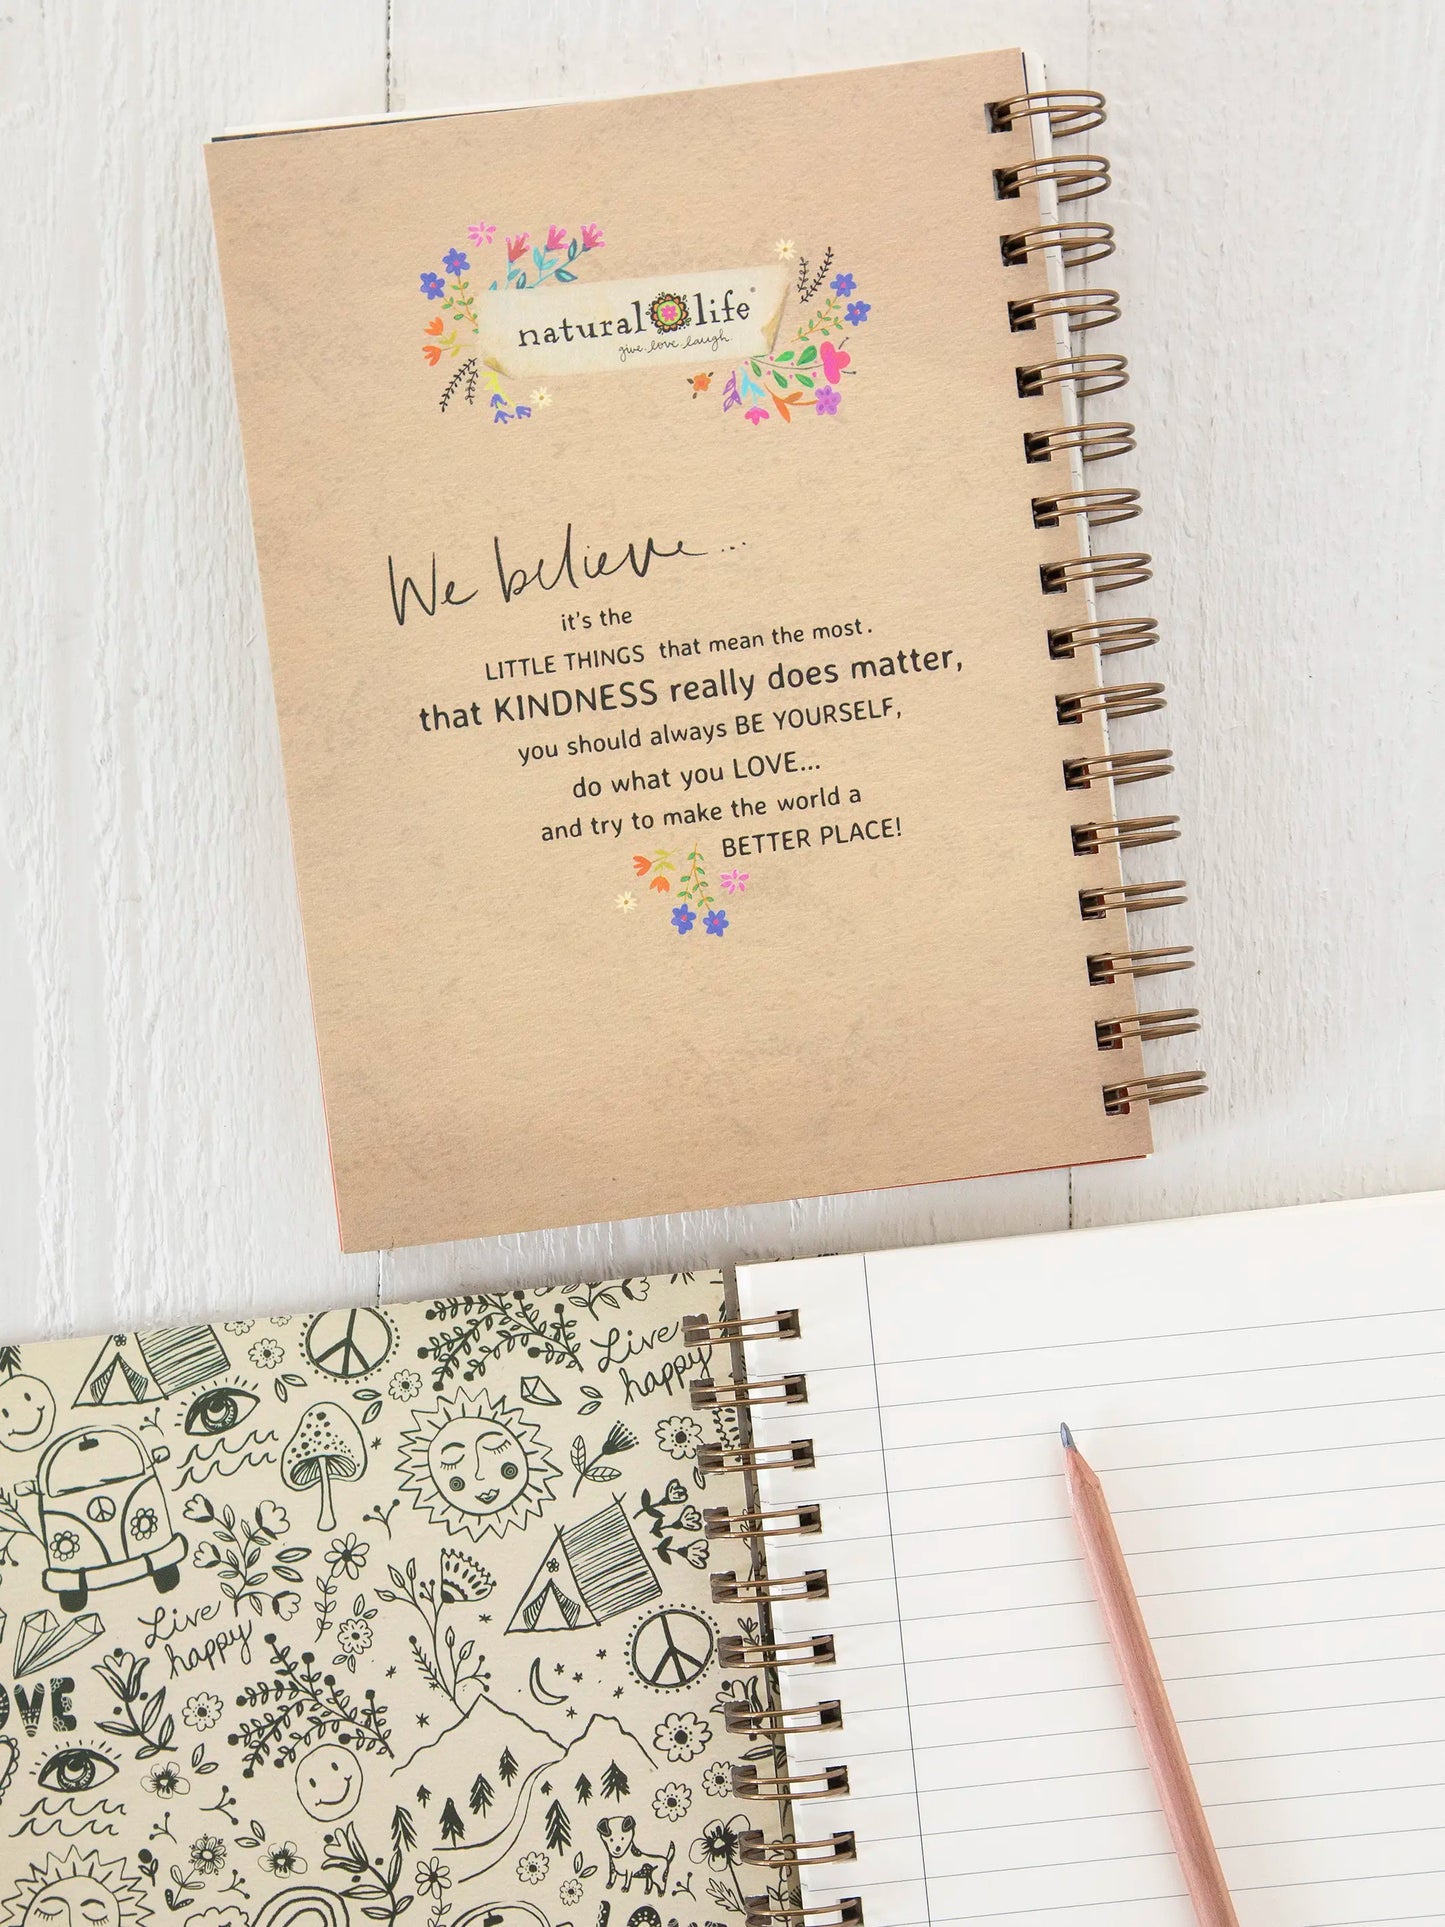 natural life®
give. love. laugh.
We believe...
it's the
LITTLE THINGS that mean the most.
that KINDNESS really does matter,
you should always BE YOURSELF,
do what you LOVE...
and try to make the world a
BETTER PLACE!
Live
happy
Live
happy
OVE